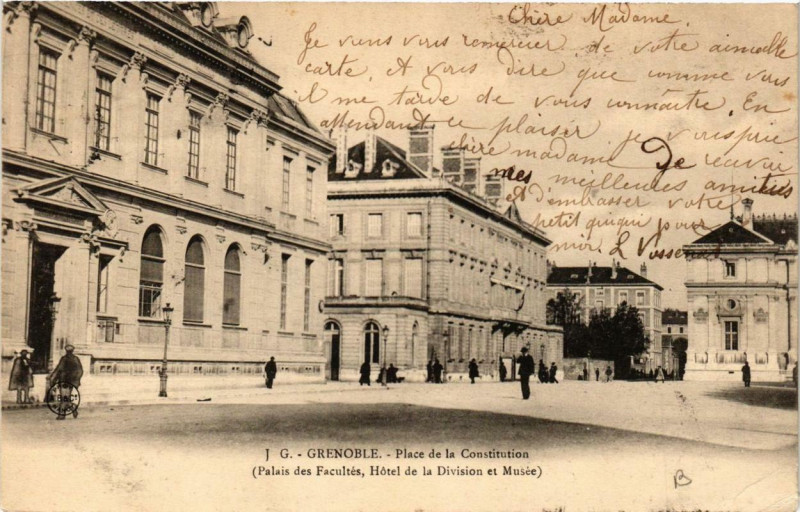 Chère Madame.
Je viens vous remercier de votre aimable
carte, et vous dire que comme vous
il me tarde de vous connaître. En
attendant ce plaisir je vous prie
chère madame De recevoir
mes meilleures amitiés
et d'embrasser votre
petit quiqui pour
moi.
J G. - GRENOBLE. - Place de la Constitution
(Palais des Facultés, Hôtel de la Division et Musée)
B